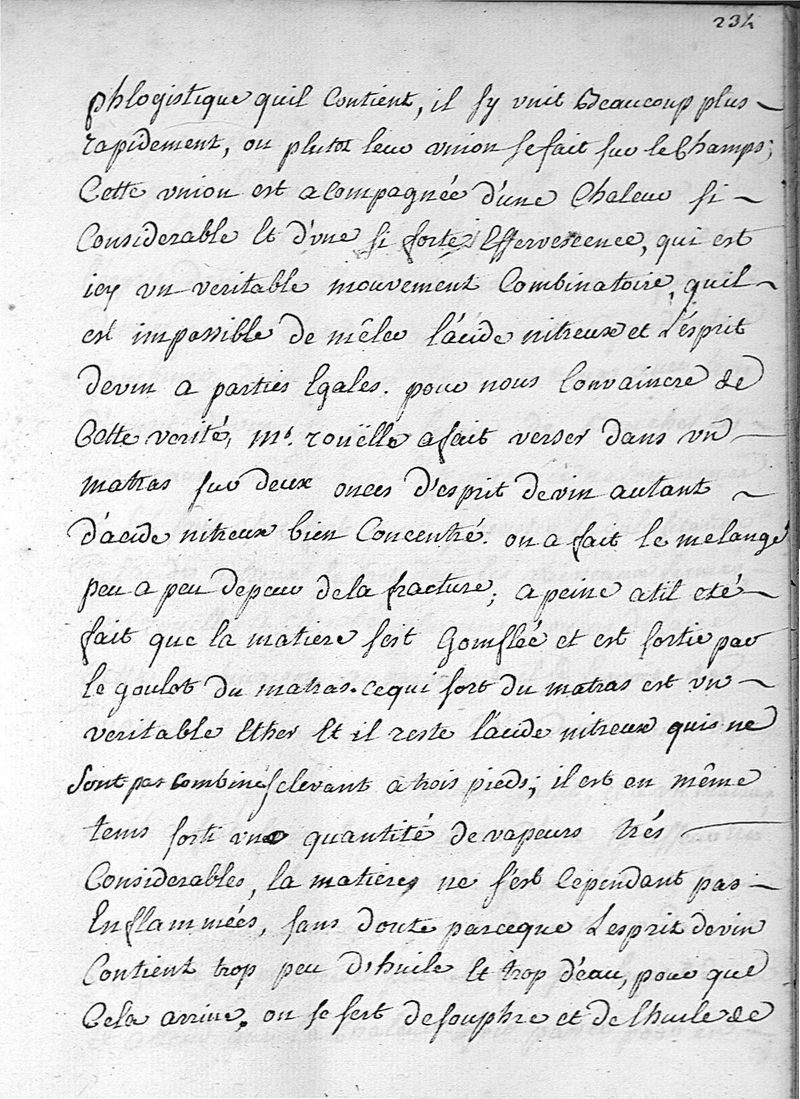 234
phlogistique quil Contient, il sy vnit Beaucoup plus
rapidement, ou plutot leur vnion se fait sur le Champs;
Cette vnion est acompagnée d'une Chaleur si
Considerable Et d'vne si forte Effervescence, qui est
icy vn veritable mouvement Combinatoire, quil
est impossible de mêler l'acide nitreux et L'ésprit
devin a parties Egales. pour nous Convaincre de
Cette verité, Mr. rouëlle a fait verser dans vn
matras sur deux onces d'esprit devin autant
d'acide nitreux bien Concentré. on a fait le melange
peu a peu depeur dela fracture; a peine atil eté
fait que la matiere s'est Gomflée et est sortie par
le goulot du matras. ce qui sort du matras est vn
veritable Ether Et il reste l'acide nitreux qui ne
sont pas combinés selevant a trois pieds; il est en même
tems sorti vne quantité de vapeurs trés
Considerables, la matieres ne s'est Cependant pas
Enflammées, sans doute parceque L'esprit devin
Contient trop peu d'huile Et trop d'eau, pour que
Cela arrive. on se sert de souphre et de l'huile de